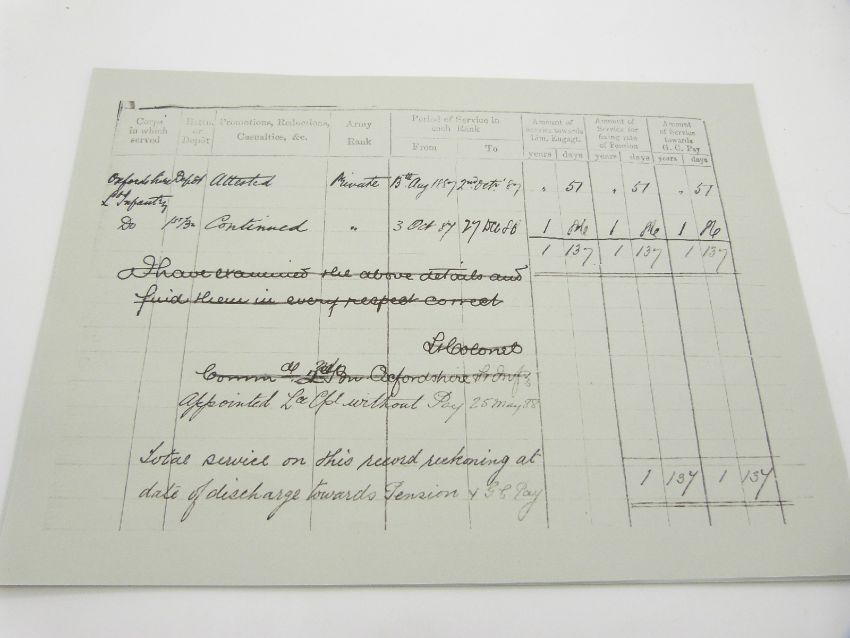 Corps in which served
Battn. or Depôt
Promotions, Reductions, Casualties, &c.
Army Rank
Period of Service in each Rank
From To
Amount of service towards Lim. Engagt.
years days
Amount of Service for fixing rate of Pension
years days
Amount of Service towards G. C. Pay
years days
Oxfordshire Depôt Attested Private 13th Aug 1887 2nd Octr '87 " 51 " 51 " 51
Lt Infantry
Do 1st Bn Continued " 3 Oct 87 27 Dec 88 1 86 1 86 1 86
1 137 1 137 1 137
I have examined the above details and
find them in every respect correct
Lt Colonel
Commdg 2nd Bn Oxfordshire Lt Infy
Appointed Lce Cpl without Pay 25 May 88
Total service on this record reckoning at
date of discharge towards Pension & G C Pay 1 137 1 137